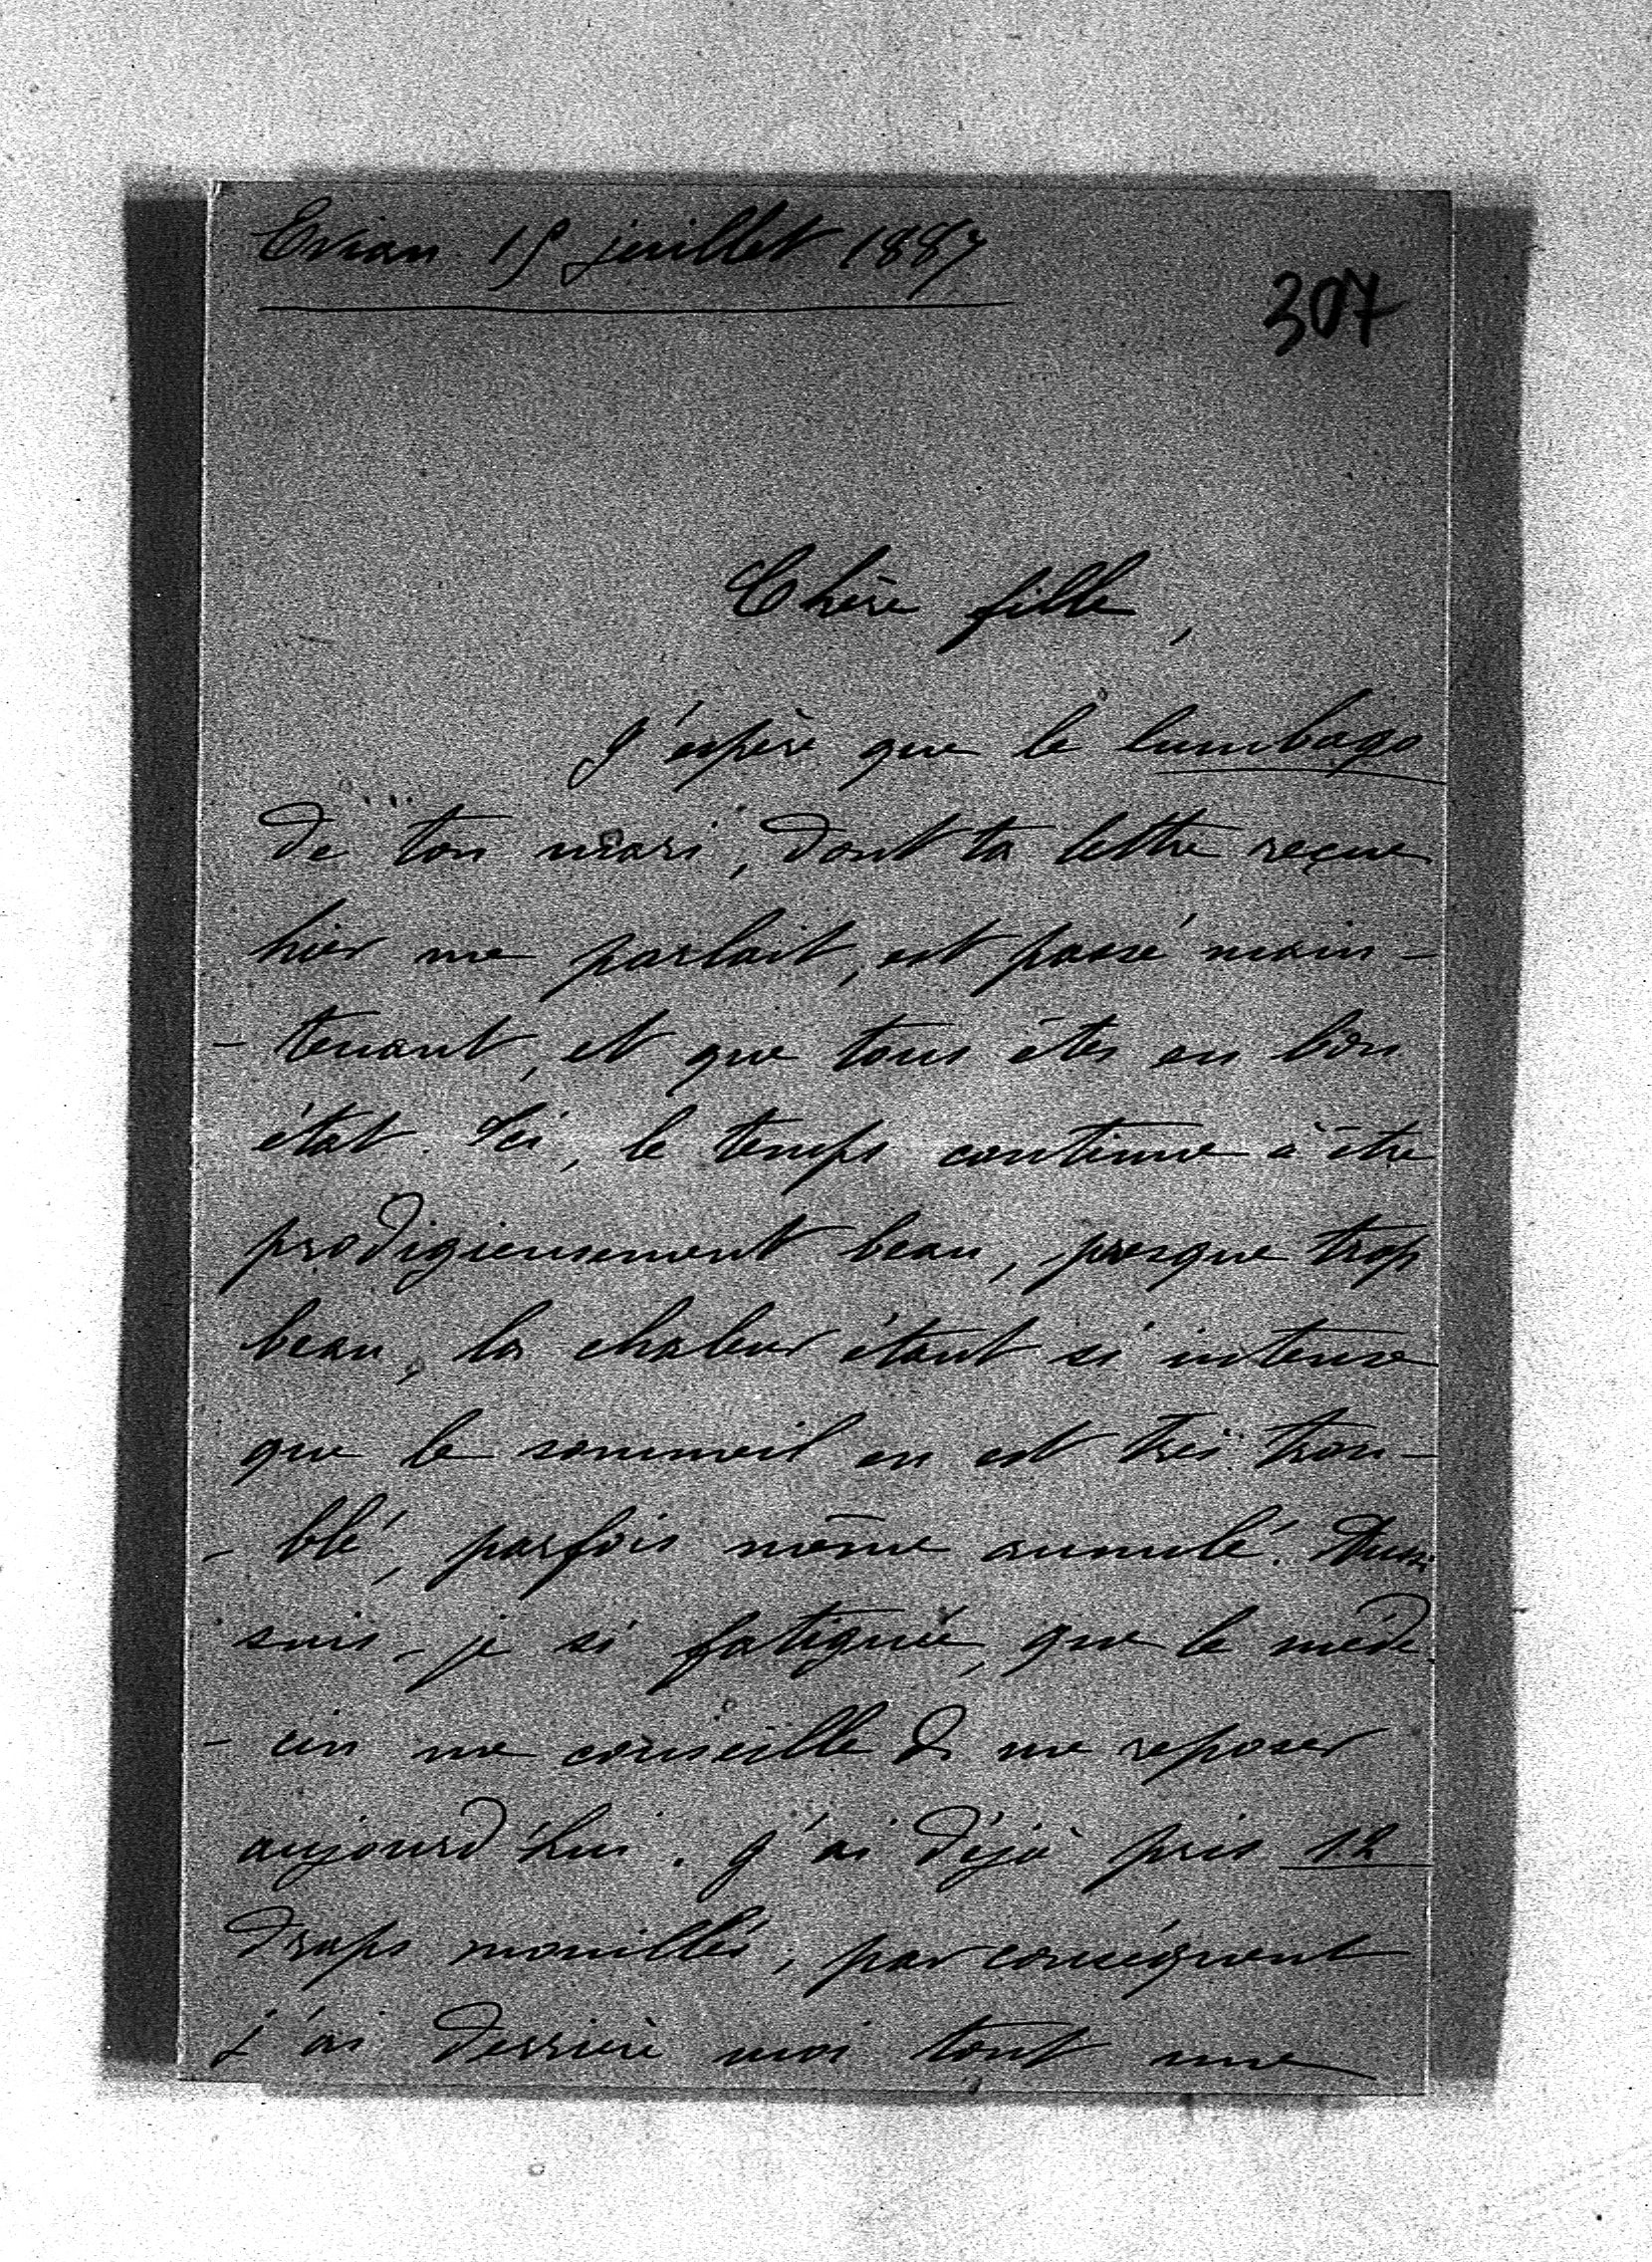 Evian 15 juillet 1887
307
Chère fille,
J'espère que le lumbago
de ton mari, dont ta lettre reçue
hier me parlait, est passé main-
- tenant, et que tous êtes en bon
état. Ici, le temps continue à être
prodigieusement beau, presque trop
beau, la chaleur étant si intense
que le sommeil en est très trou-
- blé, parfois même annulé. Aussi
suis-je si fatiguée, que le méde
- cin me conseille de me reposer
aujourd'hui. J'ai déjà pris 12
draps mouillés, par conséquent
j'ai derrière moi tout une